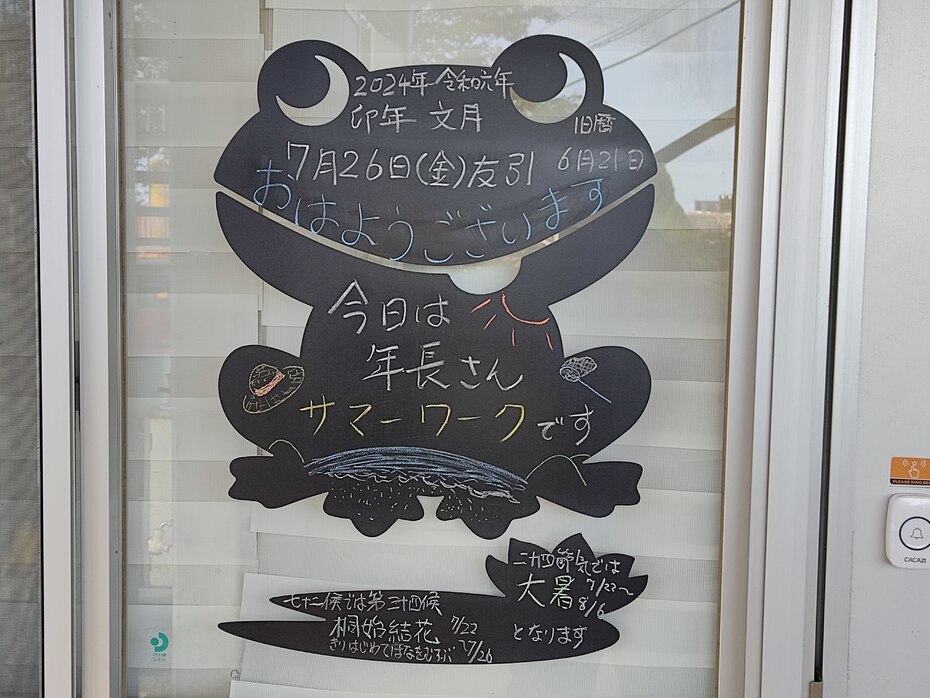 2024年 令和六年
卯年 文月
旧暦
7月26日(金)友引 6月21日
おはようございます
今日は
年長さん
サマーワークです
二十四節気では
大暑 7/22〜
8/6
となります
七十二候では第三十四候
桐始結花 7/22
きりはじめてはなをむすぶ 7/26
PLEASE RING BELL
CACAZI